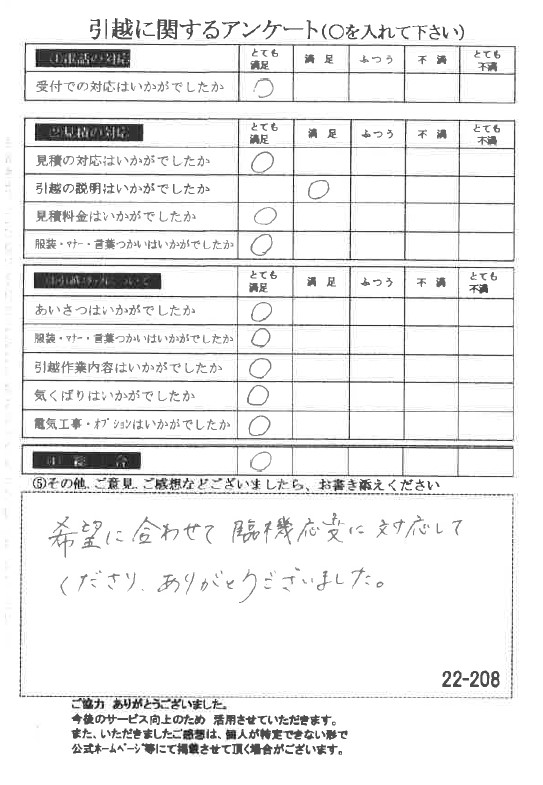 引越に関するアンケート(○を入れて下さい)
①電話の対応 とても満足 満 足 ふつう 不 満 とても不満
受付での対応はいかがでしたか ○
②見積の対応 とても満足 満 足 ふつう 不 満 とても不満
見積の対応はいかがでしたか ○
引越の説明はいかがでしたか ○
見積料金はいかがでしたか ○
服装・マナー・言葉つかいはいかがでしたか ○
とても満足 満 足 ふつう 不 満 とても不満
あいさつはいかがでしたか ○
服装・マナー・言葉つかいはいかがでしたか ○
引越作業内容はいかがでしたか ○
気くばりはいかがでしたか ○
電気工事・オプションはいかがでしたか ○
④ 総 合 ○
⑤その他、ご意見、ご感想などございましたら、お書き添えください
希望に合わせて臨機応変に対応して
くださり、ありがとうございました。
22-208
ご協力 ありがとうございました。
今後のサービス向上のため 活用させていただきます。
また、いただきましたご感想は、個人が特定できない形で
公式ホームページ等にて掲載させて頂く場合がございます。